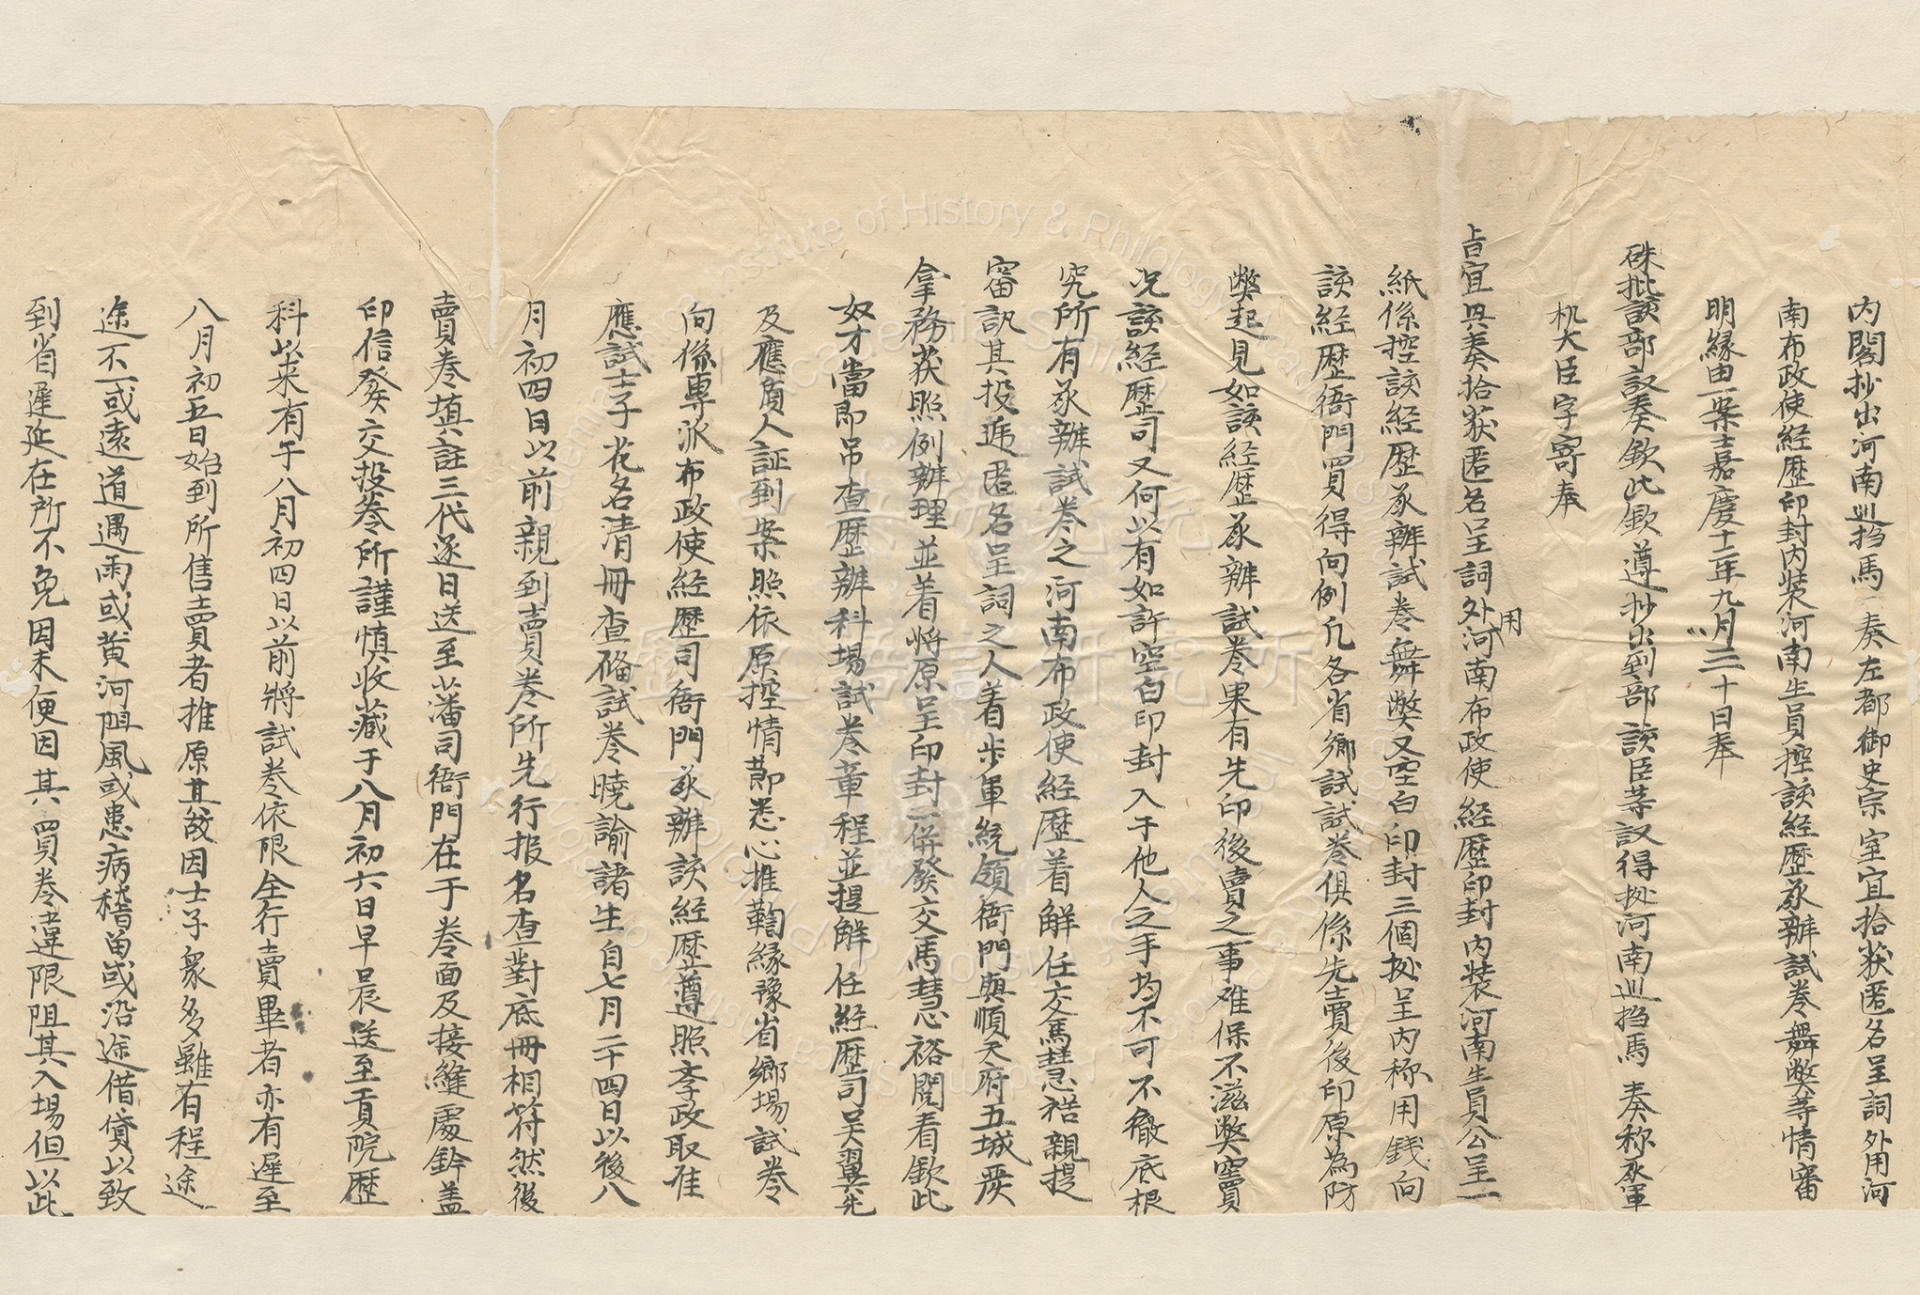 内閣抄出河南巡撫馬 奏左都御史宗室宜拾获匿名呈詞外用河
南布政使経歴印封内装河南生員控該経歴承辦試卷舞獘等情審
明縁由一案嘉慶十二年九月二十日奉
硃批該部議奏欽此欽遵抄出到部該臣等議得据河南巡撫馬 奏称承軍
机大臣字寄奉
上旨宜興奏拾获匿名呈詞外用河南布政使経歴印封内装河南生員公呈一
紙係控該経歴承辦試卷舞獘又空白印封三個据呈内称用銭向
該経歴衙門買得向例凢各省鄉試試卷俱係先賣後印原為防
獘起見如該経歴承辦試卷果有先印後賣之事难保不滋獘竇
况該経歴司又何以有如許空白印封入于他人之手均不可不徹底根
究所有承辦試卷之河南布政使経歴着解任交馬慧裕親提
審訊其投逓匿名呈詞之人着歩軍統領衙門與順天府五城嚴
拿務获照例辦理並着将原呈印封一併發交馬慧裕閲看欽此
奴才當即吊查歴辦科場試卷章程並提解任経歴司吴翼先
及應質人証到案照依原控情莭悉心推鞫縁豫省鄉場試卷
向係專派布政使経歴司衙門承辦該経歴遵照李政取准
應試士子花名清冊查俻試卷曉諭諸生自七月二十四日以後八
月初四日以前親到賣卷所先行报名查對底冊相符然後
賣卷填註三代逐日送至藩司衙門在于卷面及接縫處鈐盖
印信發交投卷所謹慎收藏于八月初六日早晨送至貢院歴
科以来有于八月初四日以前將試卷依限全行賣畢者亦有遲至
八月初五日始到所售賣者推原其故因士子衆多雖有程途
途不一或遠道遇雨或黄河阻風或患病稽畄或沿途借貸以致
到省遲延在所不免因未便因其買卷違限阻其入場但以此